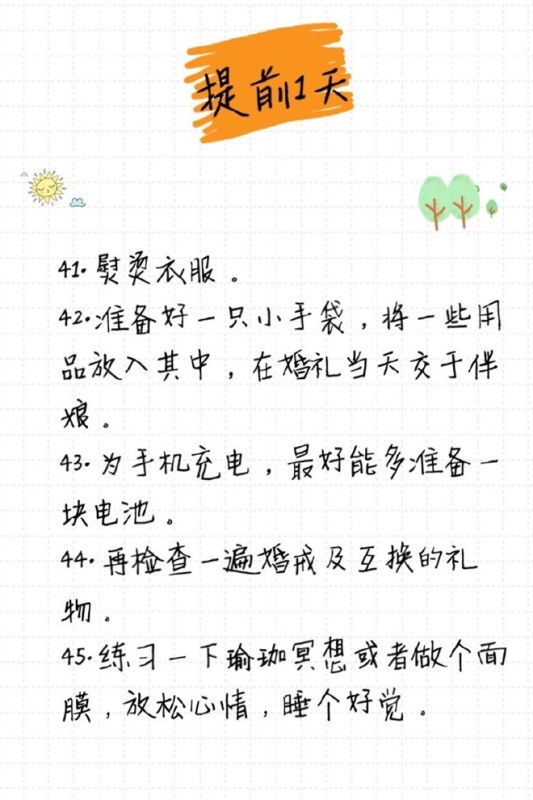 提前1天
41.熨烫衣服。
42.准备好一只小手袋，将一些用
品放入其中，在婚礼当天交于伴
娘。
43.为手机充电，最好能多准备一
块电池。
44.再检查一遍婚戒及互换的礼
物。
45.练习一下瑜珈冥想或者做个面
膜，放松心情，睡个好觉。